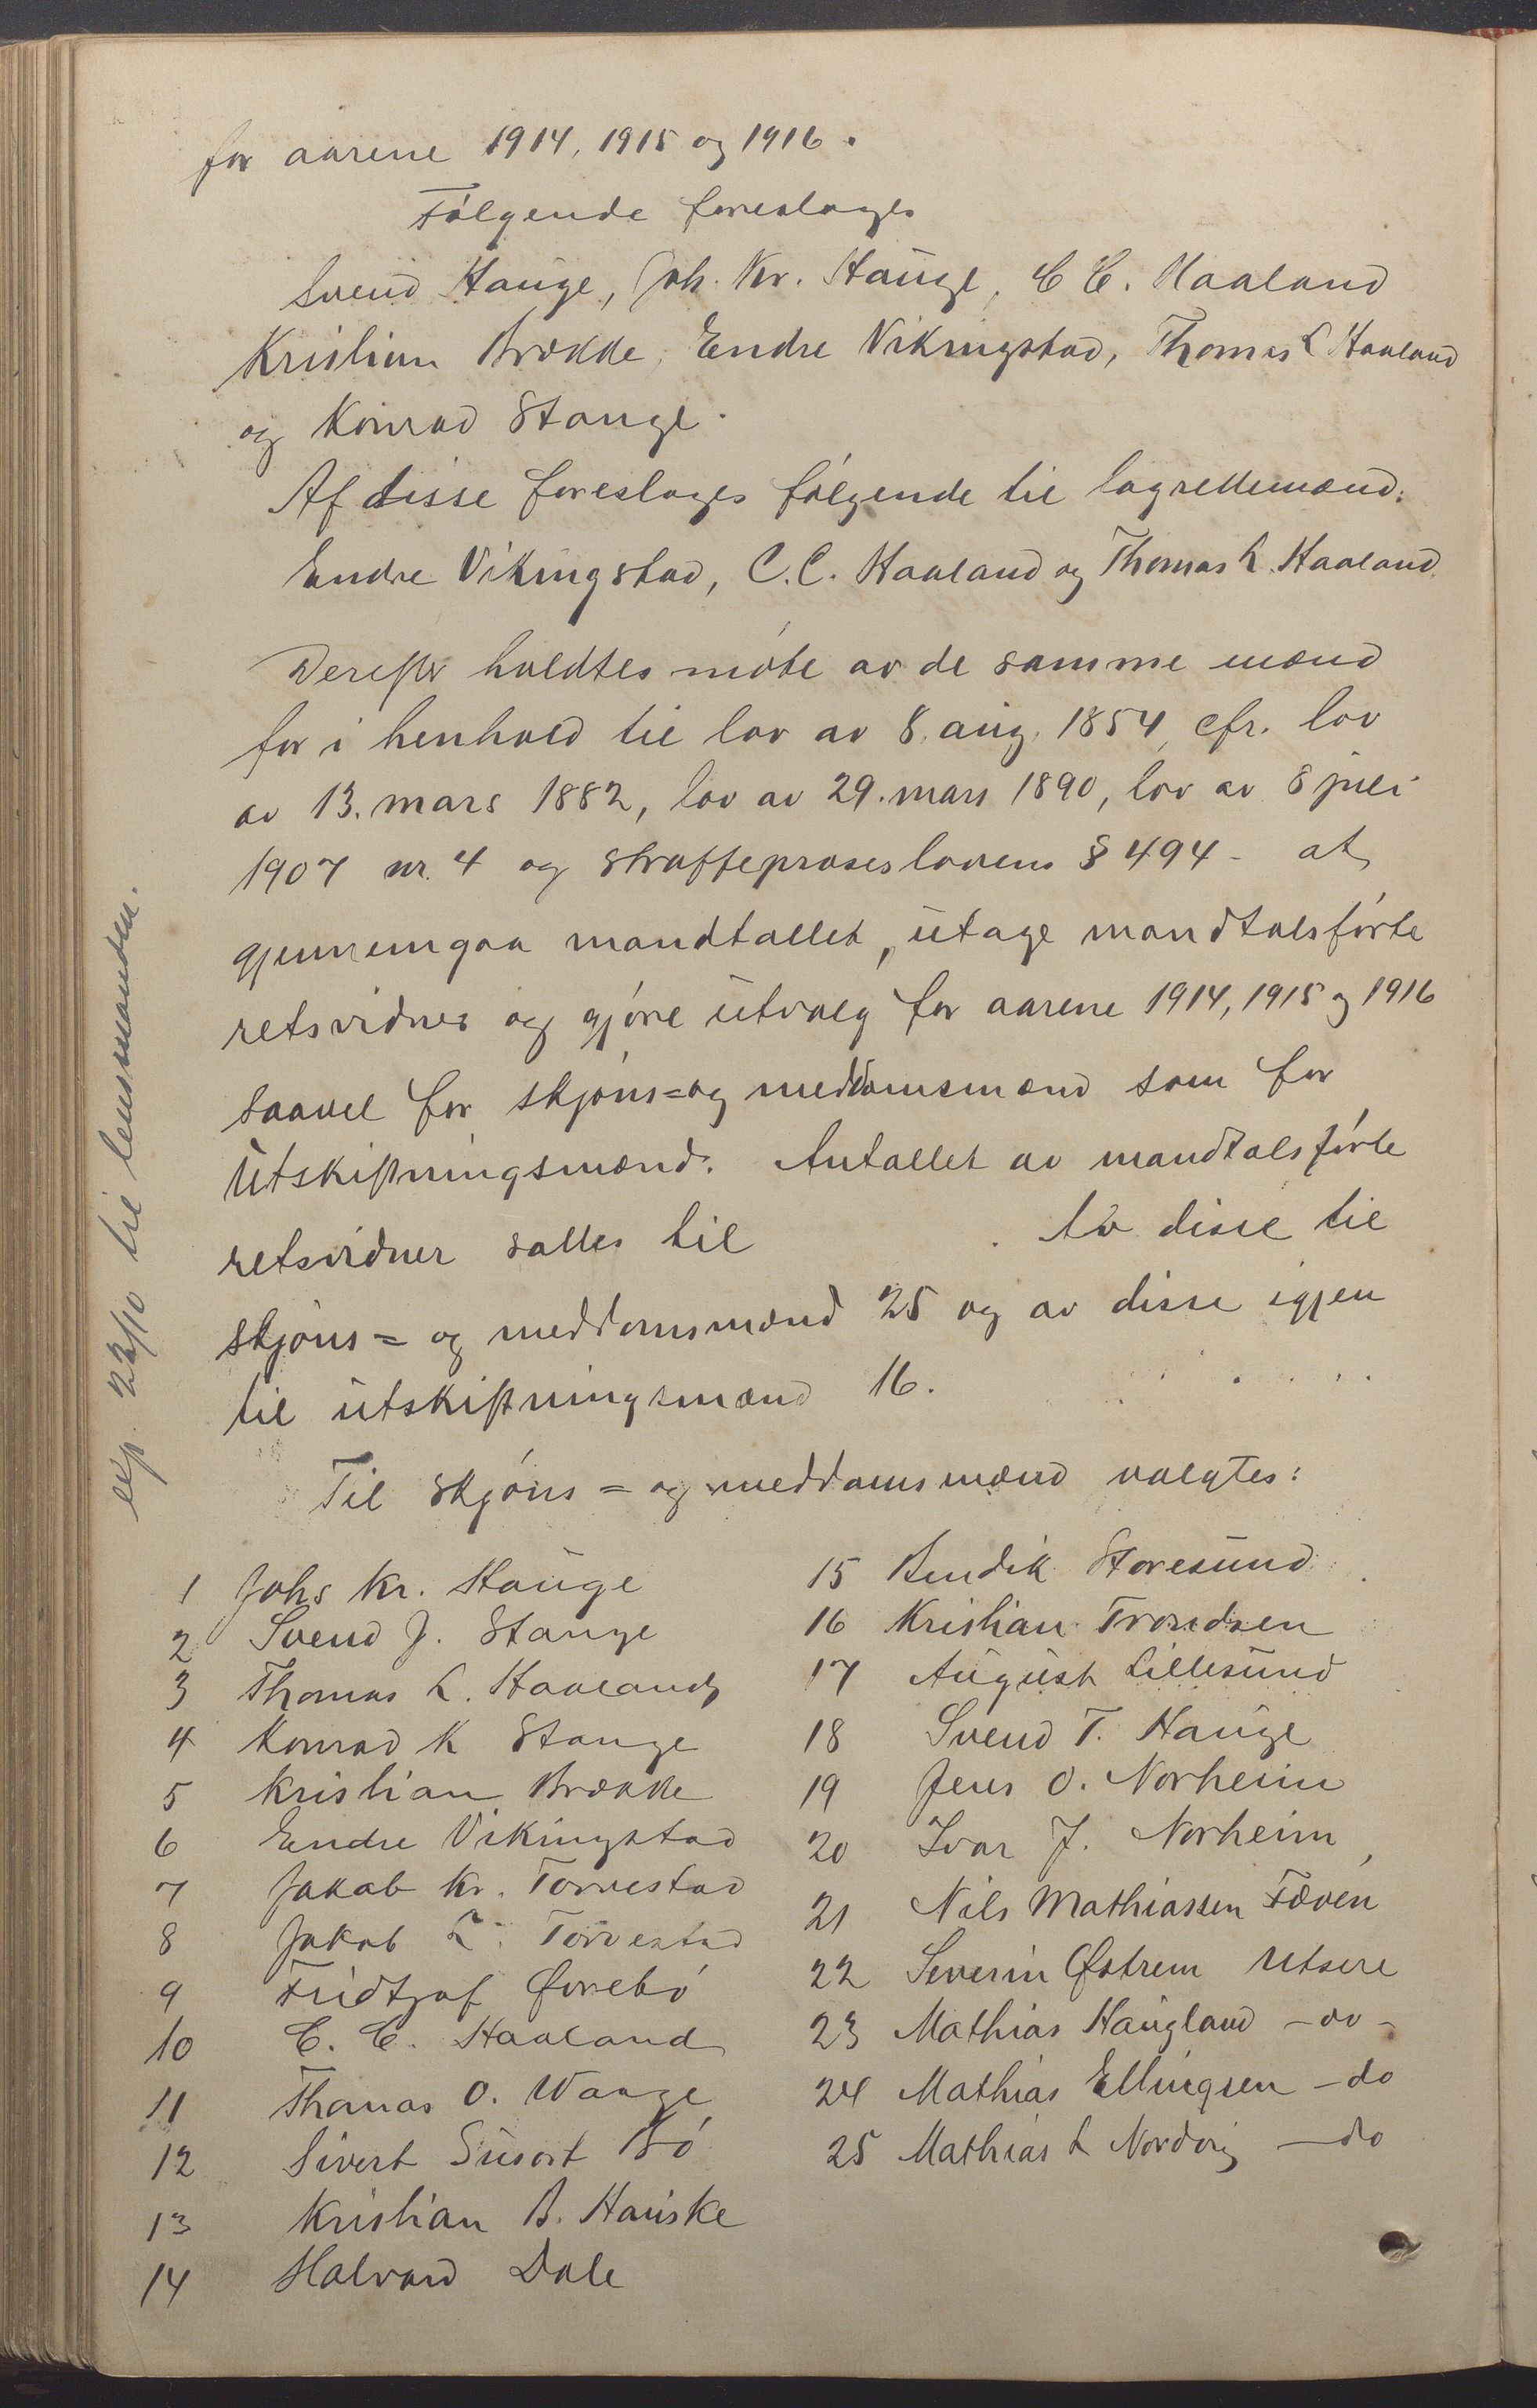 for aarene 1914, 1915 og 1916.
Følgende foreslages
Svend Hauge, Joh. Kr. Hauge, C C. Haaland
Kristian Brække, Endre Vikingstad, Thomas L Haaland
og Konrad Stange.
Af disse foreslages følgende til lagrettemænd:
Endre Vikingstad, C. C. Haaland og Thomas L. Haaland.
Derefter holdtes møte av de samme mænd
for i henhold til lov av 8. aug. 1854, cfr. lov
av 13. mars 1882, lov av 29. mars 1890, lov av 8 juli
1907 nr. 4 og straffeproseslovens § 494 - at
gjennemgaa mandtallet, uttage mandtalsførte
retsvidner og gjøre utvalg for aarene 1914, 1915 og 1916
saavel for skjøns= og meddomsmænd som for
utskiftningsmænd. Antallet av mandtalsførte
retsvidner sattes til . Av disse til
skjøns= og meddomsmænd 25 og av disse igjen
til utskiftningsmænd 16.
Til skjøns= og meddomsmænd valgtes:
1 Johs Kr. Hauge
2 Svend J. Stange
3 Thomas L. Haaland
4 Konrad K Stange
5 Kristian Brække
6 Endre Vikingstad
7 Jakob Kr. Torvestad
8 Jakob L. Torvestad
9 Fridtjof Ørrebø
10 C. C. Haaland
11 Thomas O. Waage
12 Sivert Susort Bø
13 Kristian B. Hauske
14 Halvard Dale
15 Bendik Storesund
16 Kristian Trondsen
17 August Lillesund
18 Svend T. Hauge
19 Jens O. Norheim
20 Ivar J. Norheim
21 Nils Mathiassen Fæøen
22 Severin Østrem Utsire
23 Mathias Haugland - do -
24 Mathias Ellingsen - do
25 Mathias L Nordvig - do
exp. 22/10 til lensmanden.